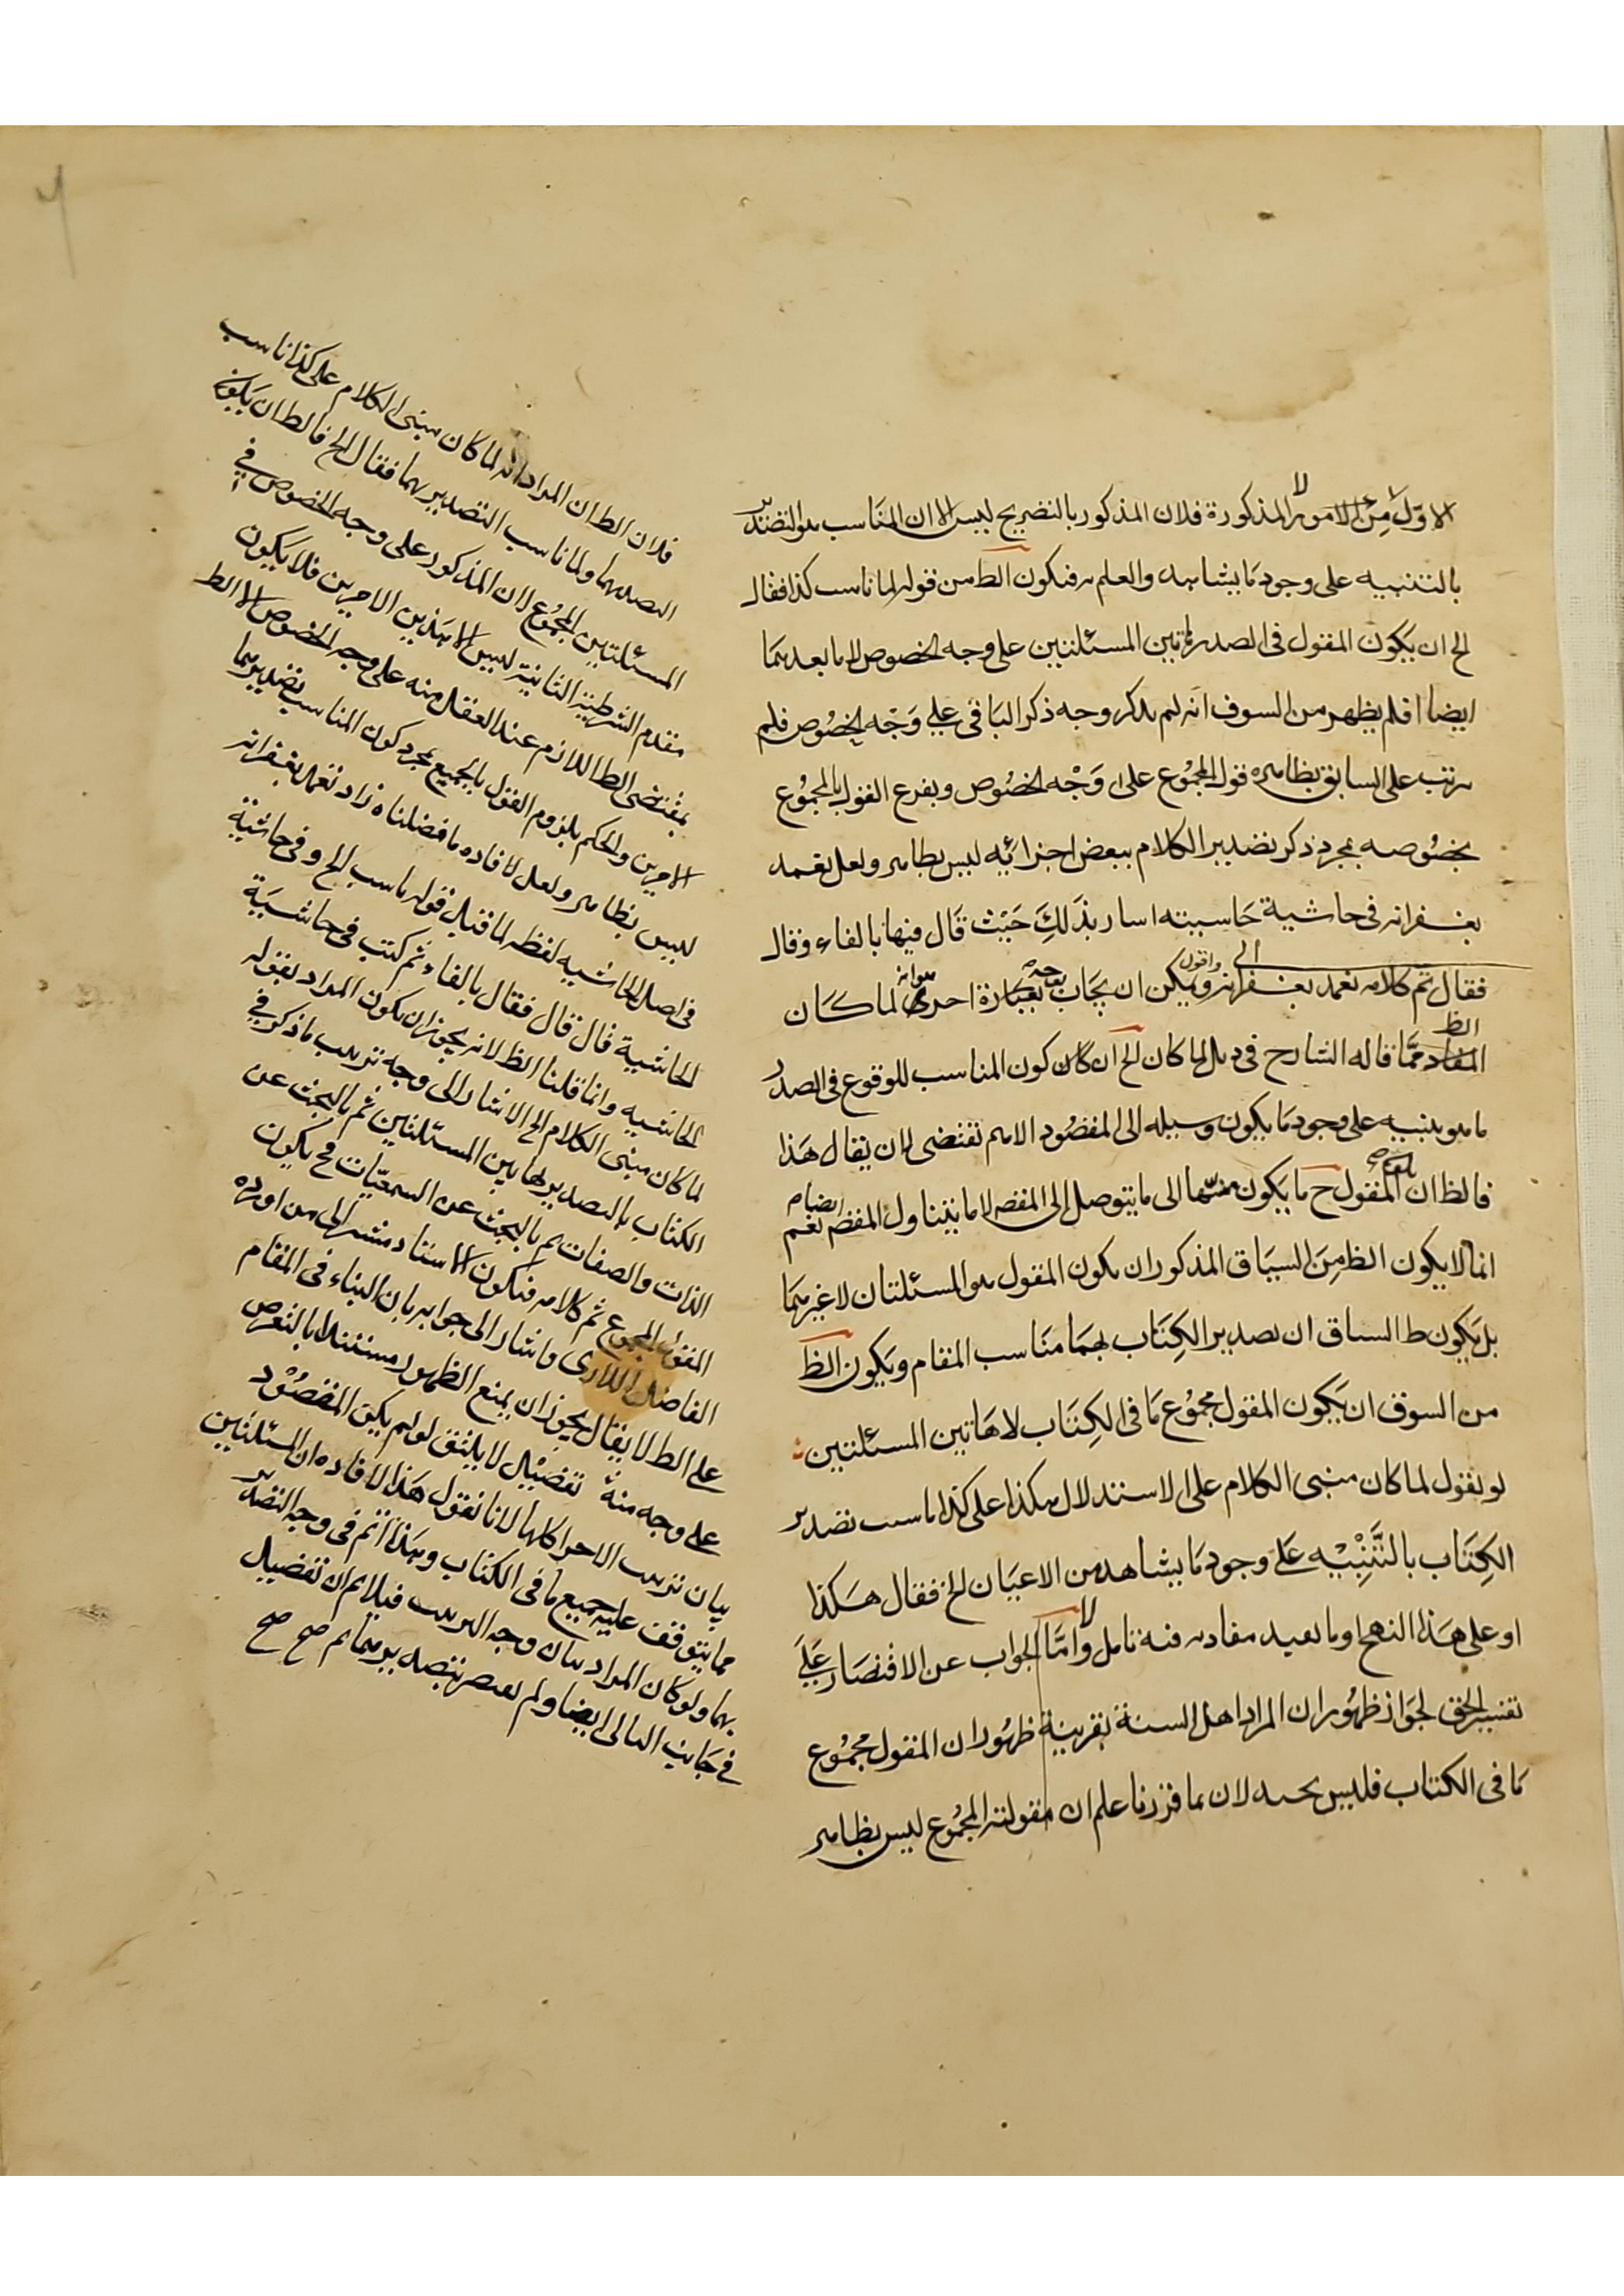 الاوّل من الامور المذكورة فلان المذكور بالتصريح ليس الا ان المناسب هو التصدير
بالتنبيه على وجود ما يشاهد والعلم به فيكون الظ من قوله لما ناسب كذا فقال
الخ ان يكون المقول في الصدر هاتين المسئلتين على وجه الخصوص لا ما بعدهما
ايضا اذ لم يظهر من السوق انه لم يذكر وجه ذكر الباقي على وجه الخصوص فلم
يرتب على السابق بظاهره قول المجموع على وجه الخصوص وتفرع القول بالمجموع
بخصوصه بمجرد ذكر تصدير الكلام ببعض اجزائه ليس بظاهر ولعل تغمد
بغفرانه في حاشية حاشيته اشار بذلك حيث قال فيها بالفاء وقال
فقال تم كلامه تغمد بغفرانه واقول ويمكن ان يجاب بعبارة اخرى هو انه لما كان
الظ مما قاله الشارح في ذيل لما كان الخ ان كان كون المناسب للوقوع في الصدر
ما هو ينبه على وجود ما يكون وسيلة الى المقصود الاهم تقتضى لان يقال هذا
فالظ ان المقول ح ما يكون منبها الى ما يتوصل الى المقصد لا ما يتناول المقصد ايضا نعم
انما لا يكون الظ من السياق المذكور ان يكون المقول هو المسئلتان لا غيرهما
بل يكون ظ السياق ان تصدير الكتاب بهما مناسب المقام ويكون الظ
من السوق ان يكون المقول مجموع ما في الكتاب لا هاتين المسئلتين
لو يقول لما كان مبنى الكلام على الاستدلال هكذا على كذا ناسب تصدير
الكتاب بالتنبيه على وجود ما يشاهد من الاعيان الخ فقال هكذا
او على هذا النهج او ما يعيد مفاده فيه تامل واما الجواب عن الاقتصار على
تفسير الحق لجواز ظهور ان المراد اهل السنة بقرينة ظهور ان المقول مجموع
ما في الكتاب فليس لان بما قررنا علم ان مقولية المجموع ليس بظاهر
فلان الظ ان المراد انه لما كان مبنى الكلام على كذا ناسب
التصدير بهما ولما ناسب التصدير بهما فقال الخ فالظ ان يكون
المسئلتين المجموع لان المذكور على وجه الخصوص في
مقدم الشرطية الثانية ليس الا هذين الامرين فلا يكون
بمقتضى الظ اللازم عند العقل منه على وجه الخصوص الا الظ
الامرين والحكم بلزوم القول بالجميع بمجرد كون المناسب تصديرهما
ليس بظاهر ولعل لافاده ما فصلناه زاد تغمد بغفرانه
في اصل الحاشيه لفظ لما قبل قوله ناسب الخ وفي حاشية
الحاشية قال قال فقال بالفاء ثم كتب في حاشية
الحاشيه وانما قلنا الظ لانه يجوز ان يكون المراد بقوله
لما كان مبنى الكلام الخ الاشار الى وجه ترتيب ما ذكر في
الكتاب بالتصدير بهاتين المسئلتين ثم بالبحث عن
الذات والصفات ثم بالبحث عن السمعيات فح يكون
المقول المجموع تم كلامه فيكون الاستاد مشير الى من اورده
الفاضل اللارى واشار الى جوابه بان البناء في المقام
على الظ لا يقال يجوز ان يمنع الظهور مستندا بالتعرض
على وجه منه تفصيل لا يليق لو لم يكن المقصود
بيان ترتيب الاجزاء كلها لانا نقول هذا لافاده ان المسئلتين
مما يتوقف عليه جميع ما في الكتاب وبهذا اتم في وجه التصدير
بهما ولو كان المراد بيان وجه الترتيب فيلايم ان تفصيل
في جانب التالي ايضا ولم يقتصر بتصدير بهما تم صح صح